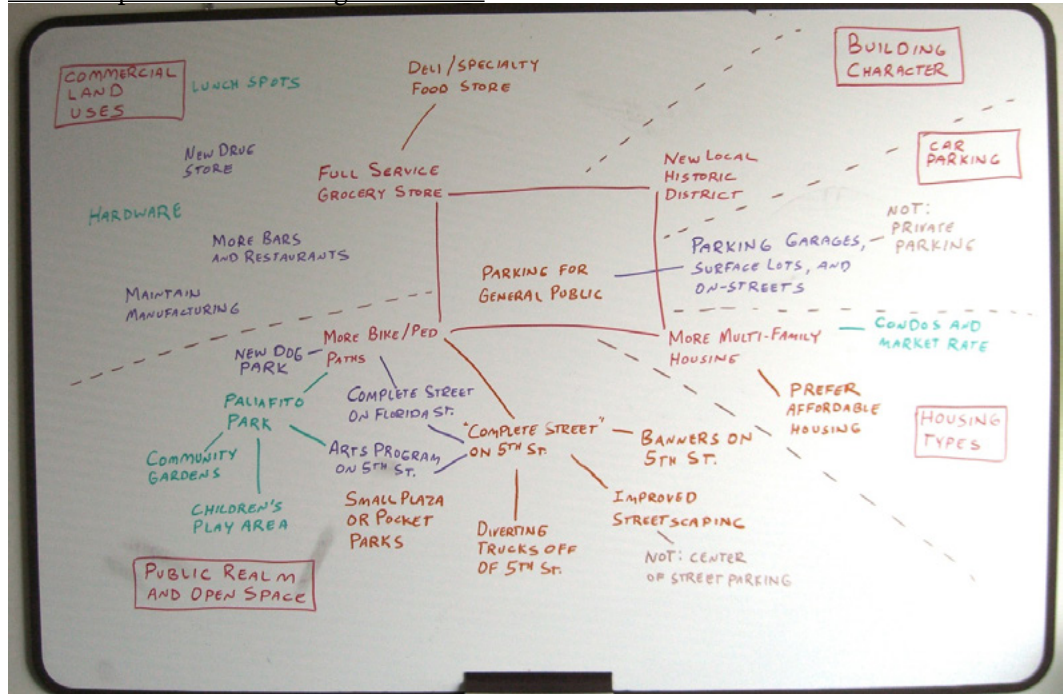 COMMERCIAL
LAND
USES
LUNCH SPOTS
DELI/SPECIALTY
FOOD STORE
BUILDING
CHARACTER
NEW DRUG
STORE
FULL SERVICE
GROCERY STORE
NEW LOCAL
HISTORIC
DISTRICT
CAR
PARKING
HARDWARE
NOT:
PRIVATE
PARKING
MORE BARS
AND RESTAURANTS
PARKING FOR
GENERAL PUBLIC
PARKING GARAGES,
SURFACE LOTS, AND
ON-STREETS
MAINTAIN
MANUFACTURING
MORE BIKE/PED
PATHS
MORE MULTI-FAMILY
HOUSING
CONDOS AND
MARKET RATE
NEW DOG
PARK
PALIAFITO
PARK
COMPLETE STREET
ON FLORIDA ST.
PREFER
AFFORDABLE
HOUSING
HOUSING
TYPES
COMMUNITY
GARDENS
ARTS PROGRAM
ON 5TH ST.
"COMPLETE STREET"
ON 5TH ST.
BANNERS ON
5TH ST.
CHILDREN'S
PLAY AREA
SMALL PLAZA
OR POCKET
PARKS
DIVERTING
TRUCKS OFF
OF 5TH ST.
IMPROVED
STREETSCAPING
NOT: CENTER
OF STREET PARKING
PUBLIC REALM
AND OPEN SPACE